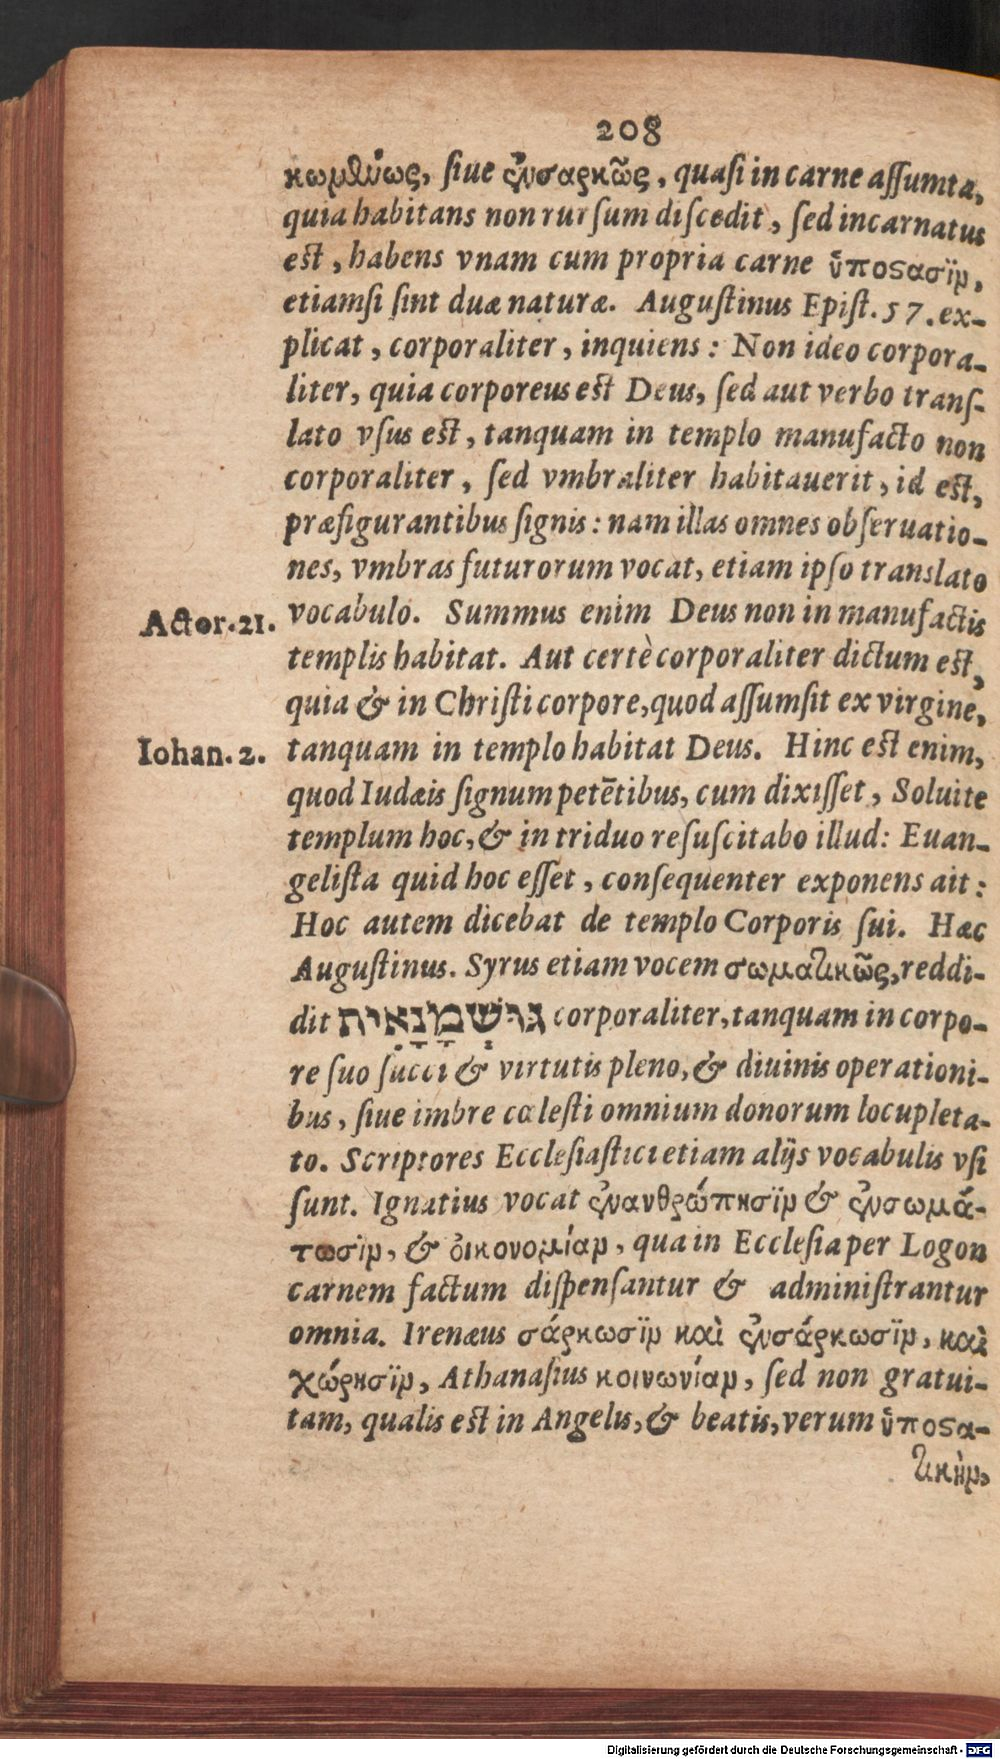 208
κωμθύως, ſiue ἐνσαρκῶς, quaſi in carne aſſumta,
quia habitans non rurſum diſcedit, ſed incarnatus
eſt, habens vnam cum propria carne ὕποϛασϊν,
etiamſi ſint duæ naturæ. Auguſtinus Epiſt. 57. ex-
plicat, corporaliter, inquiens: Non ideo corpora-
liter, quia corporeus eſt Deus, ſed aut verbo tranſ-
lato vſus eſt, tanquam in templo manufacto non
corporaliter, ſed vmbraliter habitauerit, id eſt,
præfigurantibus ſignis: nam illas omnes obſeruatio-
nes, vmbras futurorum vocat, etiam ipſo translato
Actor. 21. vocabulo. Summus enim Deus non in manufactis
templis habitat. Aut certè corporaliter dictum eſt,
quia & in Chriſti corpore, quod aſſumſit ex virgine,
Iohan. 2. tanquam in templo habitat Deus. Hinc eſt enim,
quod Iudæis ſignum petētibus, cum dixiſſet, Soluite
templum hoc, & in triduo reſuſcitabo illud: Euan-
geliſta quid hoc eſſet, conſequenter exponens ait:
Hoc autem dicebat de templo Corporis ſui. Hæc
Auguſtinus. Syrus etiam vocem σωματικῶς, reddi-
dit גוּשְׁמָנָאִית corporaliter, tanquam in corpo-
re ſuo ſucci & virtutis pleno, & diuinis operationi-
bus, ſiue imbre cæleſti omnium donorum locupleta-
to. Scriptores Eccleſiaſtici etiam alijs vocabulis vſi
ſunt. Ignatius vocat ἐνανθρώπησϊν & ἐνσωμά-
τωσϊν, & ὀικονομίαν, qua in Eccleſia per Logon
carnem factum diſpenſantur & adminiſtrantur
omnia. Irenæus σάρκωσϊν καὶ ἐνσάρκωσϊν, καὶ
χώρησϊν, Athanaſius κοινωνίαν, ſed non gratui-
tam, qualis eſt in Angelis, & beatis, verum ὕποϛα-
τικὴν,
Digitalisierung gefördert durch die Deutsche Forschungsgemeinschaft - DFG